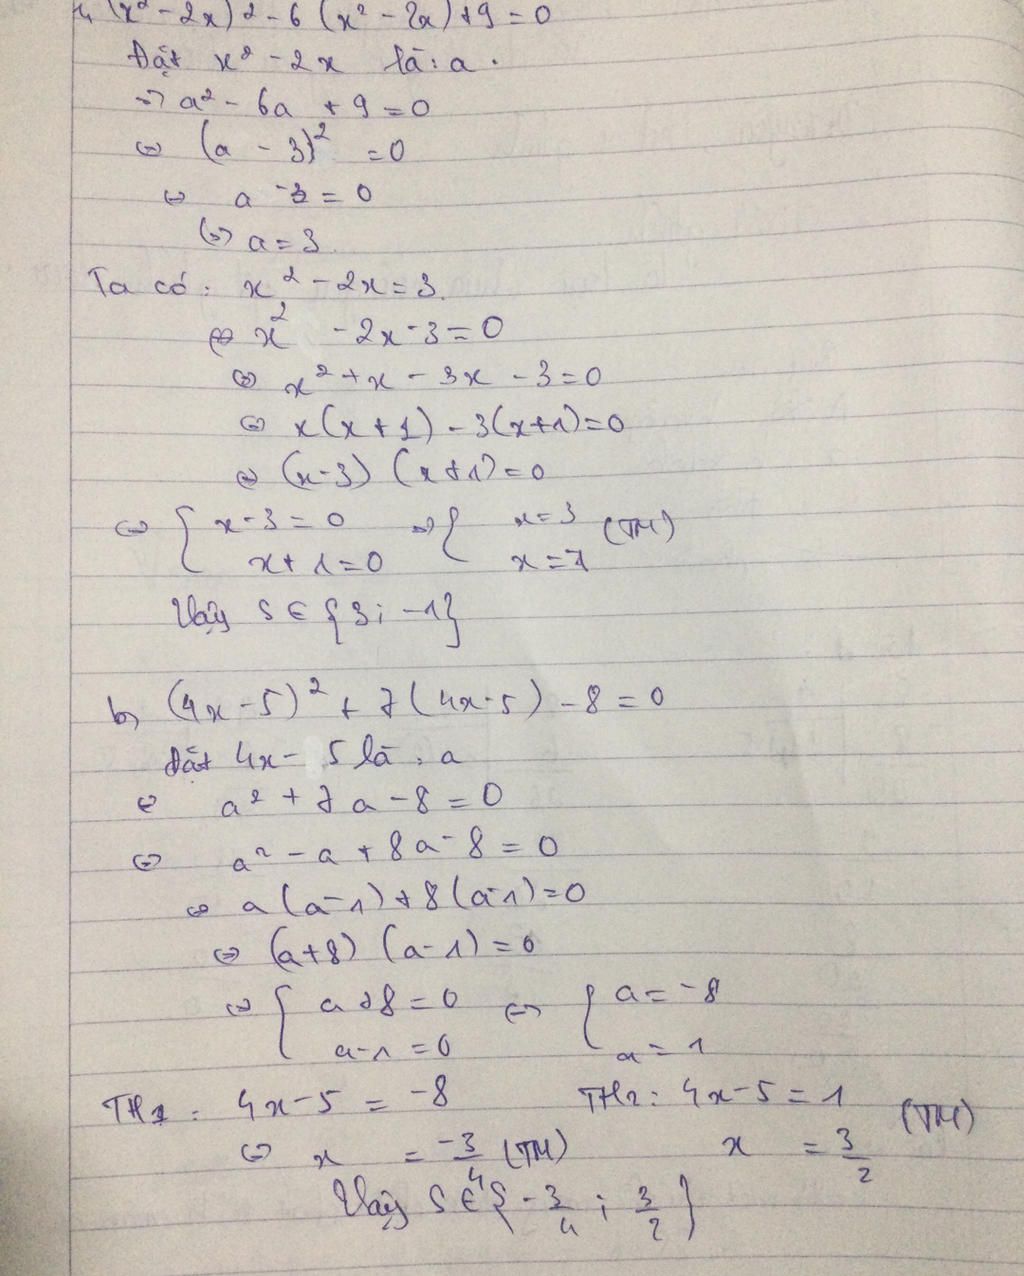 (x² - 2x)2 - 6 (x² - 2x) + 9 = 0
Đặt x² - 2x là : a .
=> a² - 6a + 9 = 0
<=> (a - 3)² = 0
<=> a - 3 = 0
<=> a = 3
Ta có : x² - 2x = 3.
<=> x² - 2x - 3 = 0
<=> x² + x - 3x - 3 = 0
<=> x(x + 1) - 3(x+1) = 0
<=> (x-3) (x+1) = 0
<=> { x-3 = 0 => { x = 3 (TM)
x + 1 = 0 x = -1
Vậy S ∈ {3; -1}
b, (4x - 5)² + 7 (4x - 5) - 8 = 0
Đặt 4x - 5 là : a
<=> a² + 7a - 8 = 0
<=> a² - a + 8a - 8 = 0
<=> a (a - 1) + 8 (a - 1) = 0
<=> (a+8) (a - 1) = 0
<=> { a + 8 = 0 <=> { a = -8
a - 1 = 0 a = 1
TH1 : 4x - 5 = -8 TH2 : 4x - 5 = 1 (TM)
<=> x = -3/4 (TM) x = 3/2
Vậy S ∈ { -3/4 ; 3/2 }